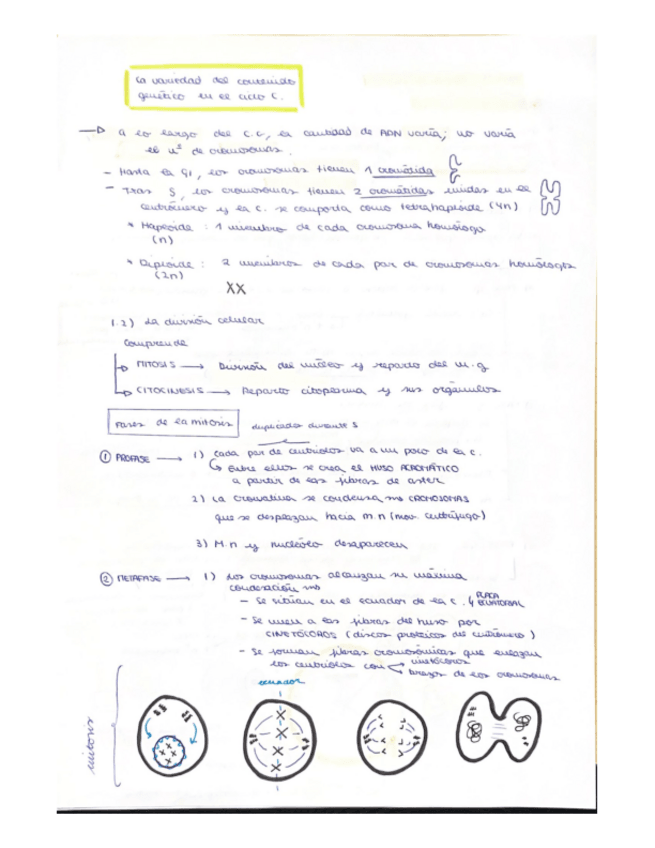 La variedad del contenido
genético en el ciclo C.
→ A lo largo del C.C, la cantidad de ADN varía; no varía
el nº de cromosomas.
- Hasta la G1, los cromosomas tienen 1 cromátida
- Tras S, los cromosomas tienen 2 cromátidas unidas en el
centrómero y la c. se comporta como tetrahaploide (4n)
* Haploide : 1 miembro de cada cromosoma homólogo
(n)
* Diploide : 2 miembros de cada par de cromosomas homólogos
(2n)
XX
1.2) La división celular
Comprende
→ MITOSIS → División del núcleo y reparto del m.g
→ CITOCINESIS → Reparto citoplasma y sus orgánulos
Fases de la mitosis
duplicados durante S
① PROFASE → 1) Cada par de centriolos va a un polo de la c.
↳ Entre ellos se crea el HUSO ACROMÁTICO
a partir de las fibras de aster
2) La cromatina se condensa ⇝ CROMOSOMAS
que se desplazan hacia m.n (mov. centrífugo)
3) M.n y nucléolo desaparecen
② METAFASE → 1) Los cromosomas alcanzan su máxima
condensación
- Se sitúan en el ecuador de la c. ↳ PLACA ECUATORIAL
- Se unen a las fibras del huso por
CINETÓCOROS (discos proteicos del centrómero)
- Se forman fibras cromosómicas que enlazan
los centriolos con cinetócoros
brazos de los cromosomas
ecuador
mitosis